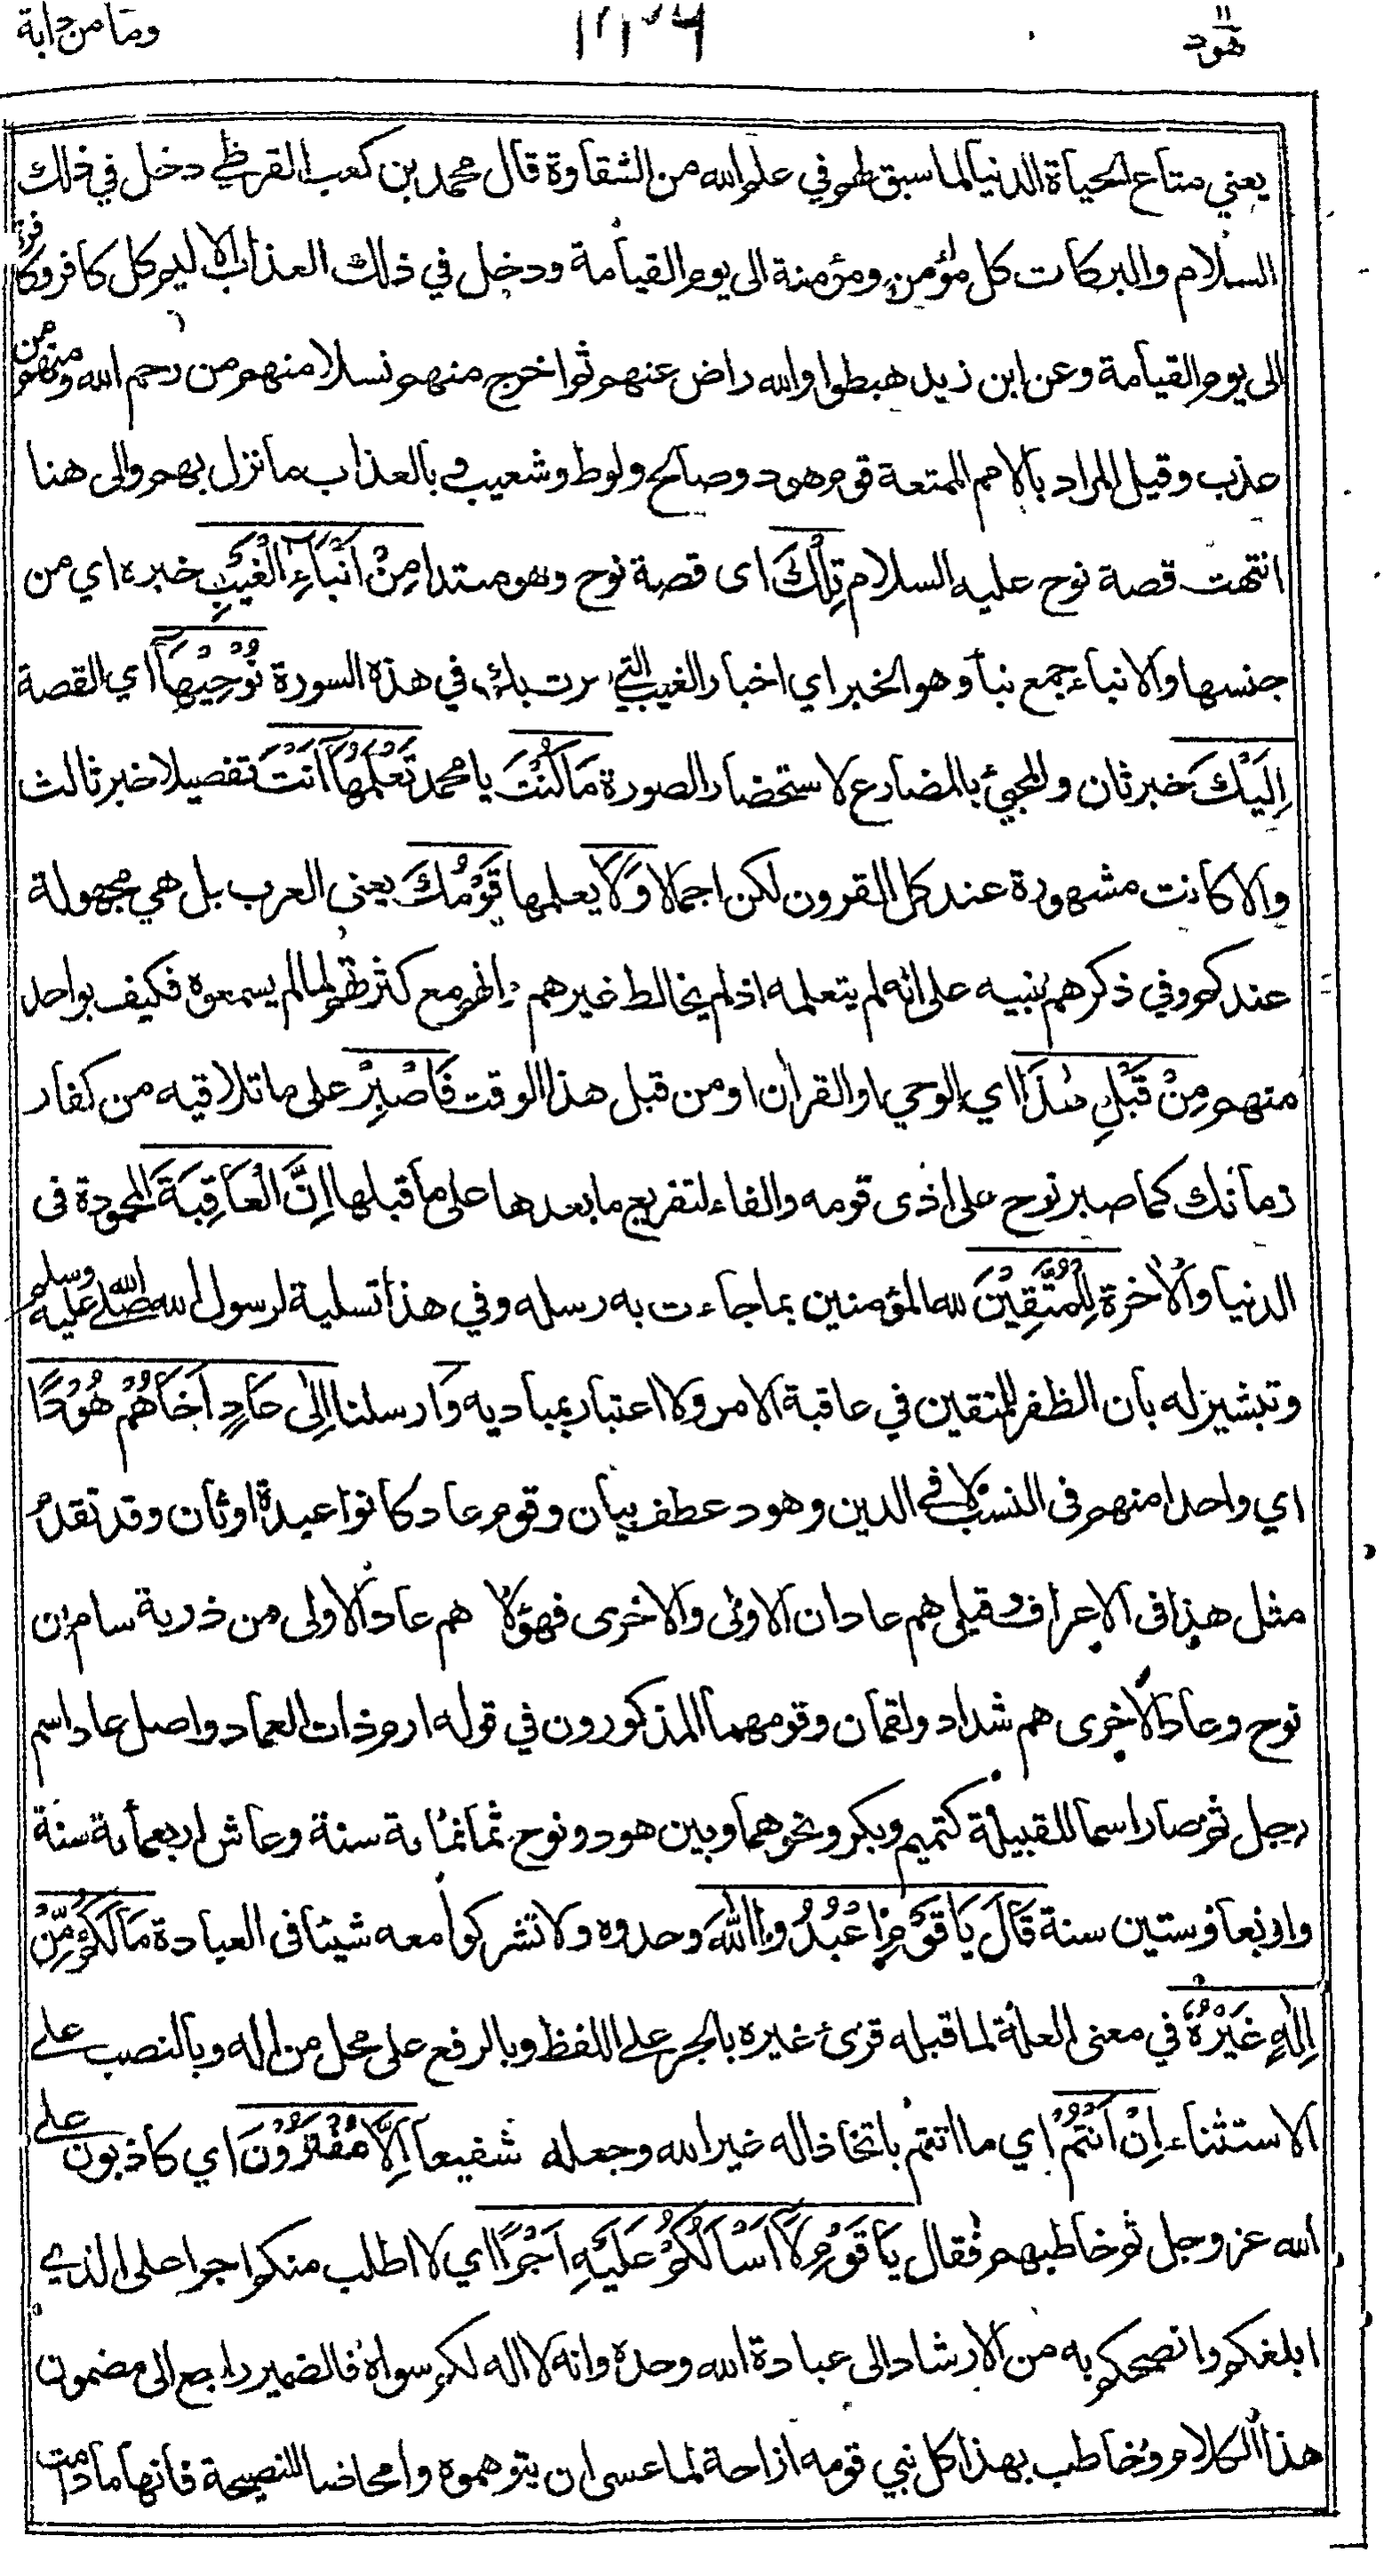 هود ١١
١١٣٦
وما من دابة
يعني متاع الحياة الدنيا لما سبق لهم في علم الله من الشقاوة قال محمد بن كعب القرظي دخل في ذلك
السلام والبركات كل مؤمن ومؤمنة الى يوم القيامة ودخل في ذلك العذاب الاليم كل كافر وكافرة
الى يوم القيامة وعن ابن زيد هبطوا والله راض عنهم ثم اخرج منهم نسلا منهم من رحم الله ومنهم من
عذب وقيل المراد بالامم الممتعة قوم هود وصالح ولوط وشعيب وبالعذاب ما نزل بهم والى هنا
انتهت قصة نوح عليه السلام تِلْكَ اى قصة نوح وهو مبتدا مِنْ اَنْبَاۤءِ الْغَيْبِ خبره اي من
جنسها والانباء جمع نبأ وهو الخبر اي اخبار الغيب التي مرت بك في هذه السورة نُوْحِيْهَاۤ اي القصة
اِلَيْكَ خبر ثان والمجيئ بالمضارع لاستحضار الصورة مَا كُنْتَ يا محمد تَعْلَمُهَاۤ اَنْتَ تفصيلا خبر ثالث
والا كانت مشهورة عند كل القرون لكن اجمالا وَلَا يعلمها قَوْمُكَ يعنى العرب بل هي مجهولة
عندكم وفي ذكرهم تنبيه على انه لم يتعلمه اذ لم يخالط غيرهم وانهم مع كثرتهم لما لم يسمعوه فكيف بواحد
منهم مِنْ قَبْلِ هٰذَا اي الوحي او القرآن او من قبل هذا الوقت فَاصْبِرْ على ما تلاقيه من كفار
زمانك كما صبر نوح على اذى قومه والفاء لتفريع ما بعدها على ما قبلها اِنَّ الْعَاقِبَةَ المحمودة فى
الدنيا والاخرة لِلْمُتَّقِيْنَ لله المؤمنين بما جاءت به رسله وفي هذا تسلية لرسول الله صلى الله عليه وسلم
وتبشير له بان الظفر للمتقين في عاقبة الامر ولا اعتبار بمباديه وَارسلنا اِلٰى عَادٍ اَخَاهُمْ هُوْدًا
اي واحدا منهم فى النسب لا في الدين وهود عطف بيان وقوم عاد كانوا عبدة اوثان وقد تقدم
مثل هذا فى الاعراف وقيل هم عادان الاولى والاخرى فهؤلاء هم عاد الاولى من ذرية سام بن
نوح وعاد الاخرى هم شداد ولقمان وقومهما المذكورون في قوله ارم ذات العماد واصل عاد اسم
رجل ثم صار اسما للقبيلة كتميم وبكر ونحوهما وبين هود ونوح ثمانمائة سنة وعاش اربعمائة سنة
واربعا وستين سنة قَالَ يَاقَوْمِ اعْبُدُوا اللهَ وحدوه ولا تشركوا معه شيئا فى العبادة مَا لَكُمْ مِّنْ
اِلٰهٍ غَيْرُهٗ في معنى العلة لما قبله قرئ غيره بالجر على اللفظ وبالرفع على محل من اله وبالنصب على
الاستثناء اِنْ اَنْتُمْ اي ما انتم باتخاذ اله غير الله وجعله شفيعا اِلَّا مُفْتَرُوْنَ اي كاذبون على
الله عز وجل ثم خاطبهم فقال يَاقَوْمِ لَاۤ اَسْاَلُكُمْ عَلَيْهِ اَجْرًا اي لا اطلب منكم اجرا على الذي
ابلغكم وانصحكم به من الارشاد الى عبادة الله وحده وانه لا اله لكم سواه فالضمير راجع الى مضمون
هذا الكلام وخاطب بهذا كل نبي قومه ازاحة لما عسى ان يتوهموه وامحاضا للنصيحة فانها ما دامت